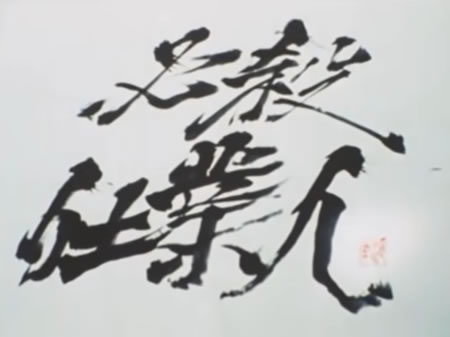 必殺
仕業人